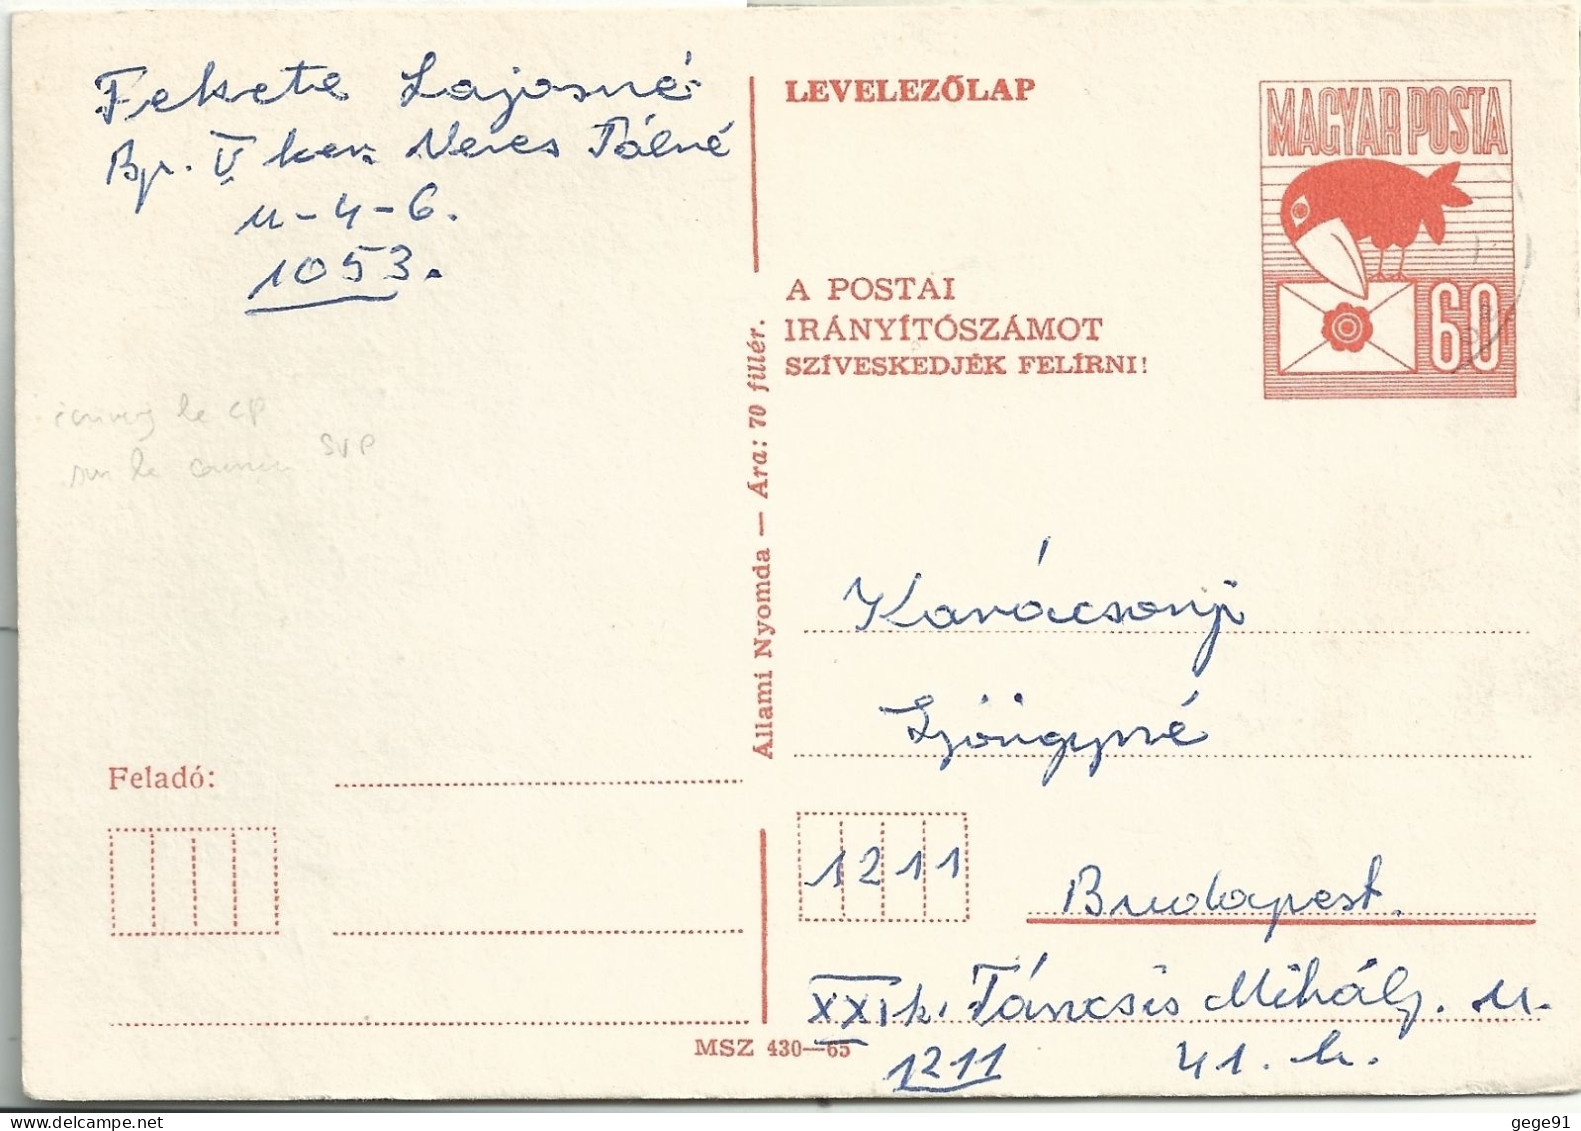 Fekete Lajosné
Bp. V ker. Veres Pálné
u-4-6.
1053.
LEVELEZŐLAP
MAGYAR POSTA
60
A POSTAI
IRÁNYÍTÓSZÁMOT
SZÍVESKEDJÉK FELÍRNI!
le CP
SVP
sur le
Állami Nyomda — Ára: 70 fillér.
Karácsonyi
Györgyné
Feladó:
1211
Budapest.
XXI k. Táncsis Mihály. u.
MSZ 430—65
1211 41.
gege91